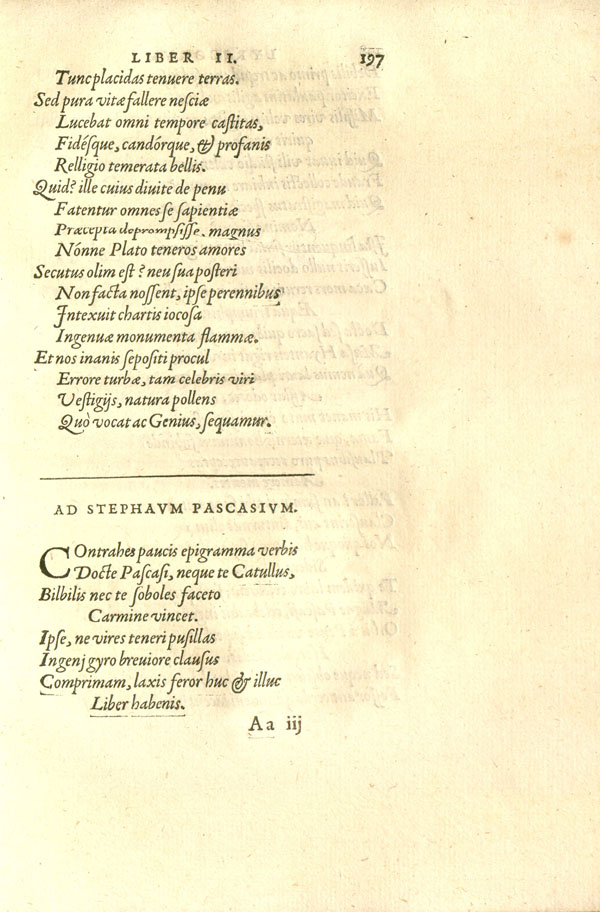 LIBER II. 197
Tunc placidas tenuere terras.
Sed pura vitæ fallere nesciæ
Lucebat omni tempore castitas,
Fidésque, candórque, & profanis
Relligio temerata bellis.
Quid? ille cuius diuite de penu
Fatentur omnes se sapientiæ
Præcepta deprompsisse, magnus
Nónne Plato teneros amores
Secutus olim est? neu sua posteri
Non facta nossent, ipse perennibus
Intexuit chartis iocosa
Ingenuæ monumenta flammæ.
Et nos inanis sepositi procul
Errore turbæ, tam celebris viri
Vestigijs, natura pollens
Quò vocat ac Genius, sequamur.
AD STEPHAVM PASCASIVM.
COntrahes paucis epigramma verbis
Docte Pascasi, neque te Catullus,
Bilbilis nec te soboles faceto
Carmine vincet.
Ipse, ne vires teneri pusillas
Ingenj gyro breuiore clausus
Comprimam, laxis feror huc & illuc
Liber habenis.
Aa iij